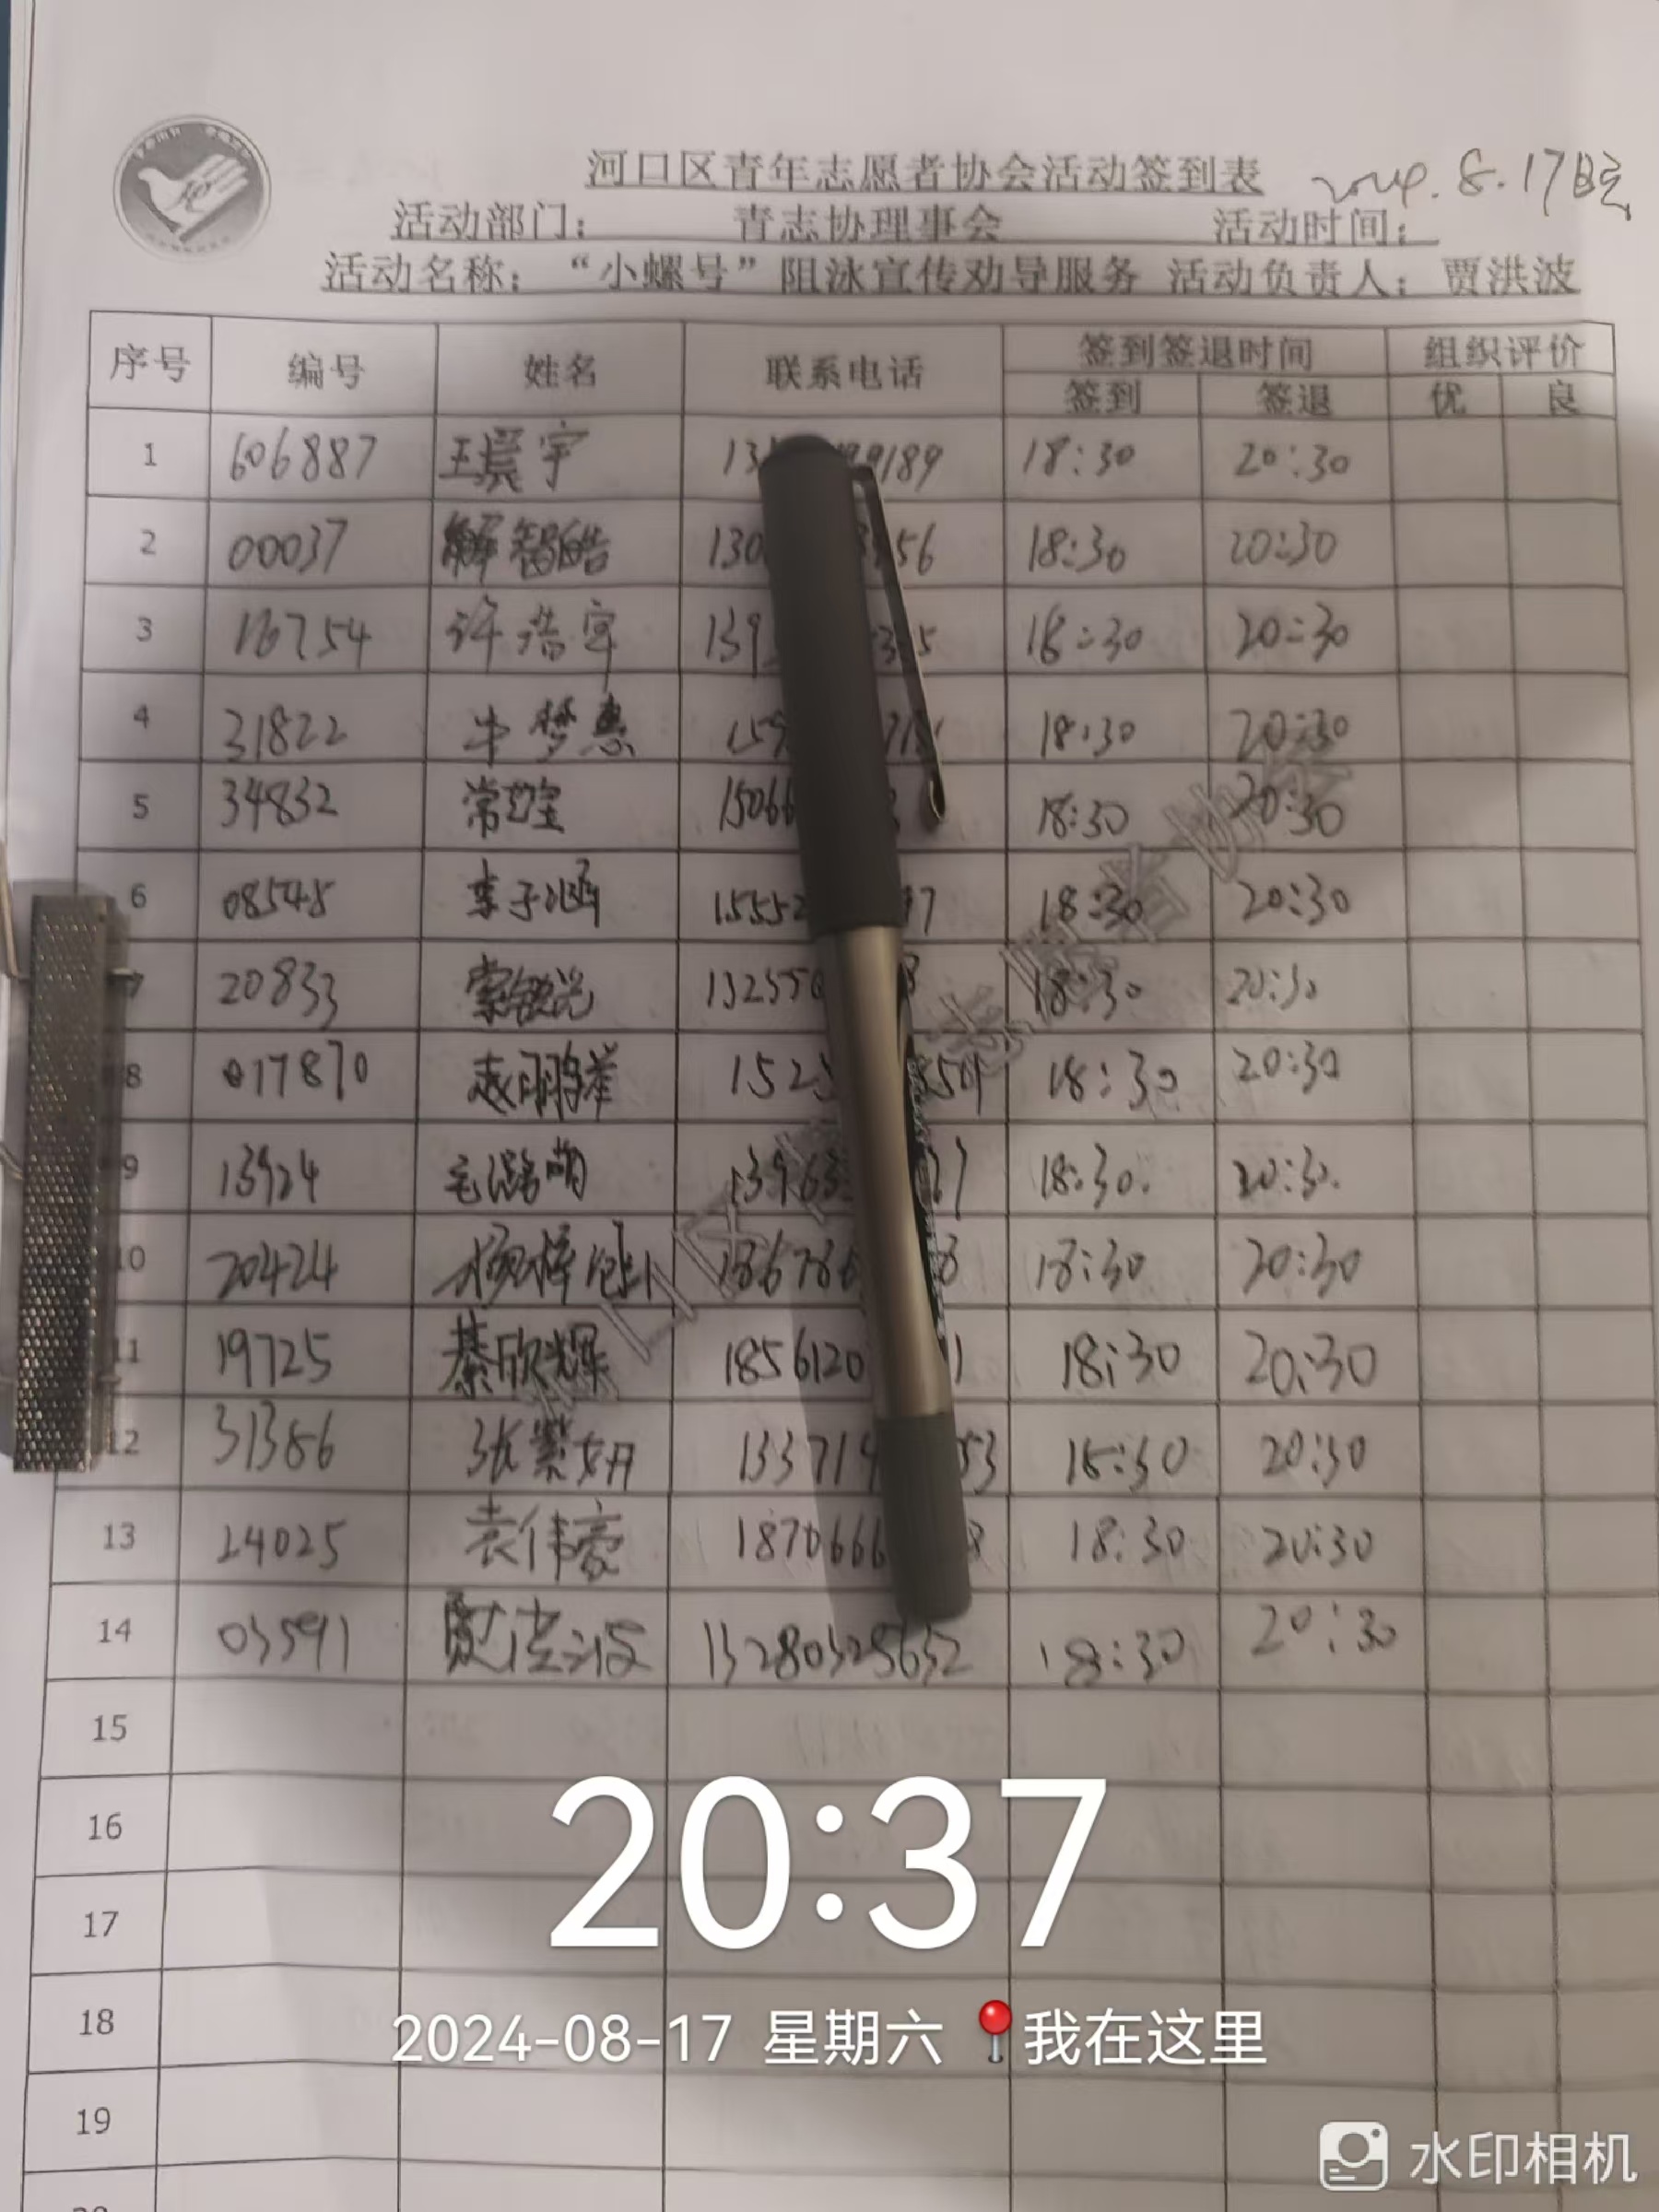 河口区青年志愿者协会活动签到表 2024.8.17日
活动部门： 青志协理事会 活动时间：
活动名称：“小螺号”阻泳宣传劝导服务 活动负责人：贾洪波
序号 编号 姓名 联系电话 签到签退时间 组织评价
签到 签退 优 良
1 606887 宇 18:30 20:30
2 00037 解智皓 130 56 18:30 20:30
3 16754 许浩宇 139 18:30 20:30
4 31822 牛梦惠 159 18:30 20:30
5 34832 常 15066 18:30 20:30
6 08545 李子涵 1555 18:30 20:30
7 20833 18:30 20:30
8 017870 152 18:30 20:30
9 13924 毛潞萌 13963 18:30 20:30
10 20424 杨梓 18:30 20:30
11 19725 綦欣辉 1856120 18:30 20:30
12 31386 张紫妍 13371 53 18:30 20:30
13 24025 袁伟豪 1870666 8 18:30 20:30
14 03591 贾洪波 13280325632 18:30 20:30
15
16
17
18
19
20:37
2024-08-17 星期六 我在这里
水印相机